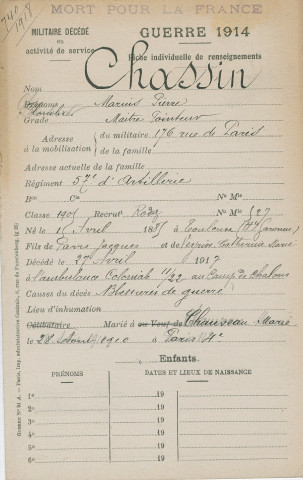 MORT POUR LA FRANCE
740
1918
MILITAIRE DÉCÉDÉ
en
activité de service
GUERRE 1914
Fiche individuelle de renseignements
Chassin
Nom
Prénoms Marius Pierre
Grade Maître Pointeur
Adresse à la mobilisation
du militaire 176 rue de Paris
de la famille
Adresse actuelle de la famille
Régiment 57e d'Artillerie
Bie Cie N° Mle
Classe 1905 Recrut Rodez N° Mle 527
Né le 15 Avril 1885 à Toulouse (Hte Garonne)
Fils de Pierre Jacques et de Catherine Marie
Décédé le 27 Avril 1917
à l'ambulance Coloniale 11/22 au Camp de Chalons
Causes du décès Blessures de guerre
Lieu d'inhumation
Célibataire. Marié à ou Veuf de Chauseau Marie
le 28 Août 1910 à Paris 4e
Enfants.
PRÉNOMS DATES ET LIEUX DE NAISSANCE
1° 19
2° 19
3° 19
4° 19
5° 19
6° 19